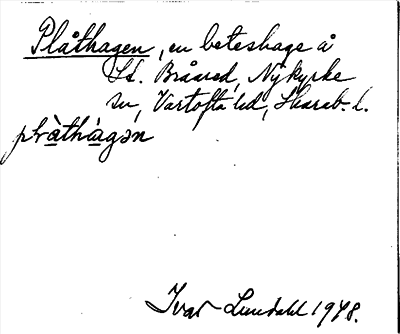 Plåthagen, en beteshage å
St. Bråared, Nykyrke
sn, Vartofta hd, Skarab. l.
plàthàgən
Ivar Lundahl 1948.